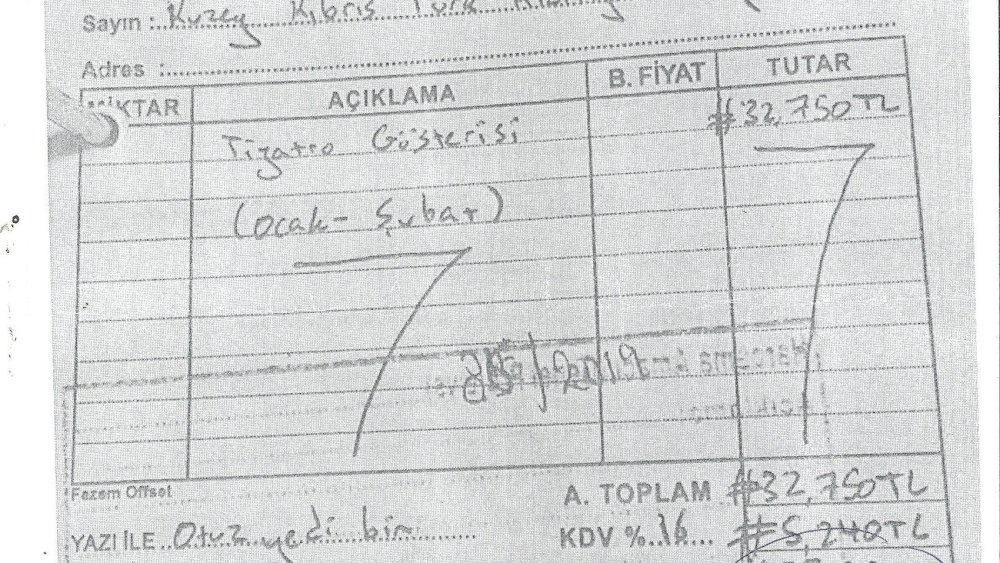 Sayın : Kuzey Kıbrıs Türk
Adres :
MİKTAR AÇIKLAMA B. FİYAT TUTAR
Tiyatro Gösterisi #32,750TL
(Ocak - Şubat)
Fezem Offset
A. TOPLAM #32,750TL
YAZI İLE Otuz yedi bin KDV %16 #5,240TL